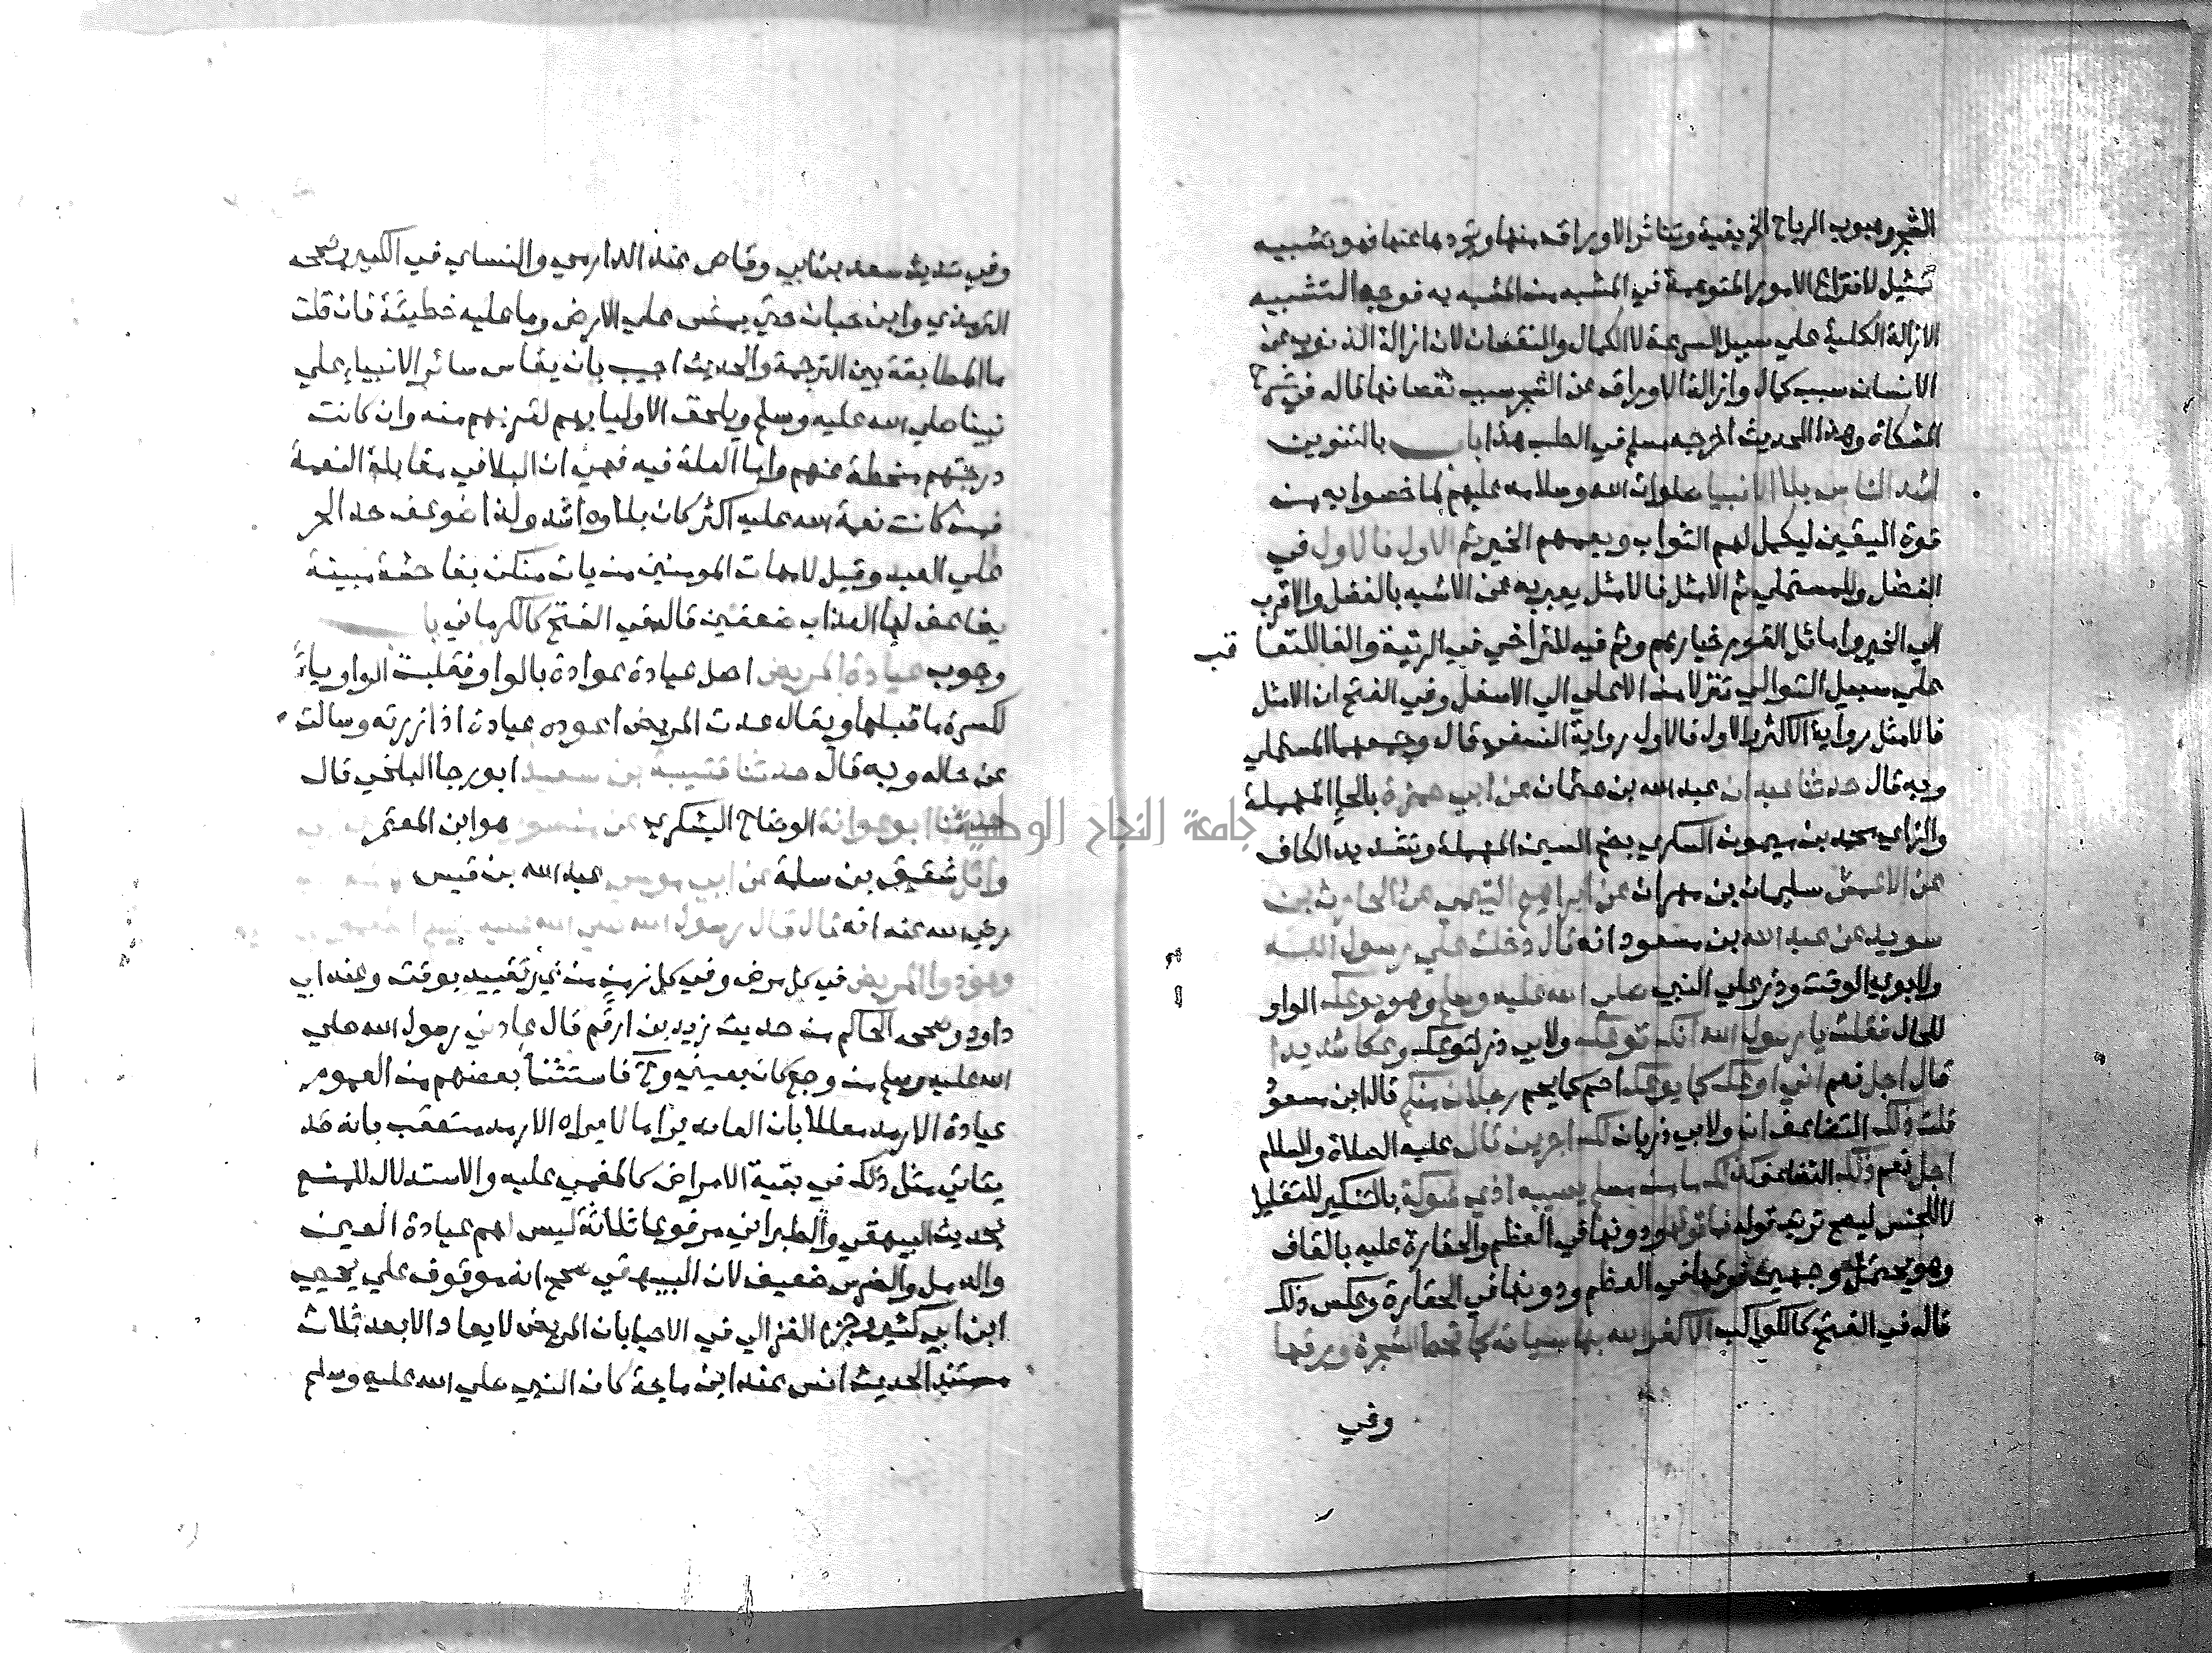 الشجر وهبوب الرياح الخريفية وتناثر الاوراق منها وتجردها عنها فهو تشبيه
تمثيل لانتزاع الامور المتوهمة في المشبه من المشبه به فوجه التشبيه
الازالة الكلية علي سبيل السرعة لا الكمال والنقصان لان ازالة الذنوب عن
الانسان سبب كمال وازالة الاوراق عن الشجر سبب نقصانها قاله في شرح
المشكاة وهذا الحديث اخرجه مسلم في الطب هذا باب بالتنوين
اشد الناس بلا الانبيا صلوات الله وسلامه عليهم لما خصوا به من
قوة اليقين ليكمل لهم الثواب ويعمهم الخير ثم الاول فالاول في
الفضل وللمستملي ثم الامثل فالامثل يعبر به عن الاشبه بالفضل والاقرب
الي الخير واماثل القوم خيارهم وثم فيه للتراخي في الرتبة والفا للتعا قب
علي سبيل التوالي تنزلا من الاعلي الي الاسفل وفي الفتح ان الامثل
فالامثل رواية الاكثر والاول فالاول رواية النسفي قال وجمعهما المستملي
وبه قال حدثنا عبدان عبد الله بن عثمان عن ابي حمزة بالحا المهملة
والزاي محمد بن ميمون السكري بضم السين المهملة وتشديد الكاف
عن الاعمش سليمان بن مهران عن ابراهيم التيمي عن الحارث بن
سويد عن عبد الله بن مسعود انه قال دخلت علي رسول الله
ولابوي الوقت وذر علي النبي صلي الله عليه وسلم وهو يوعك الواو
للحال فقلت يا رسول الله انك توعك ولابي ذر لتوعك وعكا شديدا
قال اجل نعم اني اوعك كما يوعك احم كما يحم رجلان منكم قال ابن مسعود
قلت ذلك التضاعف ان ولابي ذر بان لك اجرين قال عليه الصلاة والسلام
اجل نعم ذلك التضاعف كذلك ما من مسلم يصيبه اذي شوكة بالتنكير للتقليل
لا للجنس ليصح ترتب قوله فما فوقها ودونها في العظم والحقارة عليه بالفاف
وهو يحتمل وجهين فوقها في العظم ودونها في الحقارة وعكس ذلك
قاله في الفتح كالكواكب الا كفر الله بها سياته كما تحط الشجرة ورقها
وفي
وفي حديث سعد بن ابي وقاص عند الدارمي والنساي في الكبير وصححه
الترمذي وابن حبان حتي يمشي علي الارض وما عليه خطيئة فان قلت
ما المطابقة بين الترجمة والحديث اجيب بان يقاس سائر الانبياء علي
نبينا صلي الله عليه وسلم ويلحق الاوليا بهم لقربهم منه وان كانت
درجتهم منحطة عنهم واما العلة فيه فهي ان البلا في مقابلة النعمة
فمن كانت نعمة الله عليه اكثر كان بلاوه اشد ولذا ضوعف حد الحر
علي العبد وقيل لامهات المومنين من يات منكن بفاحشة مبينة
يضاعف لها العذاب ضعفين قاله في الفتح كالكرماني با
وجوب عيادة المريض اصل عيادة عوادة بالواو فقلبت الواو ياء
لكسرة ما قبلها ويقال عدت المريض اعوده عيادة اذا زرته وسالت
عن حاله وبه قال حدثنا قتيبة بن سعيد ابو رجا البلخي قال
حدثنا ابو عوانة الوضاح اليشكري عن منصور هو ابن المعتمر
وائل شقيق بن سلمة عن ابي موسي عبد الله بن قيس
رضي الله عنه انه قال قال رسول الله صلي الله عليه وسلم
وعودوا المريض في كل مرض وفي كل زمن من غير تقييد بوقت وعند ابي
داود وصححه الحاكم من حديث زيد بن ارقم قال عادني رسول الله صلي
الله عليه وسلم من وجع كان بعيني وح فاستثنا بعضهم من العموم
عيادة الارمد معللا بان العائد يرا ما لا يراه الارمد متعقب بانه قد
يتاتي مثل ذلك في بقية الامراض كالمغمي عليه والاستدلال للمنع
بحديث البيهقي والطبراني مرفوعا ثلاثة ليس لهم عيادة العين
والدمل والضرس ضعيف لان البيهقي صحح انه موقوف علي يحيي
ابن ابي كثير وجزم الغزالي في الاحيا بان المريض لا يعاد الا بعد ثلاث
مستند الحديث انس عند ابن ماجة كان النبي صلي الله عليه وسلم
جامعة النجاح الوطنية